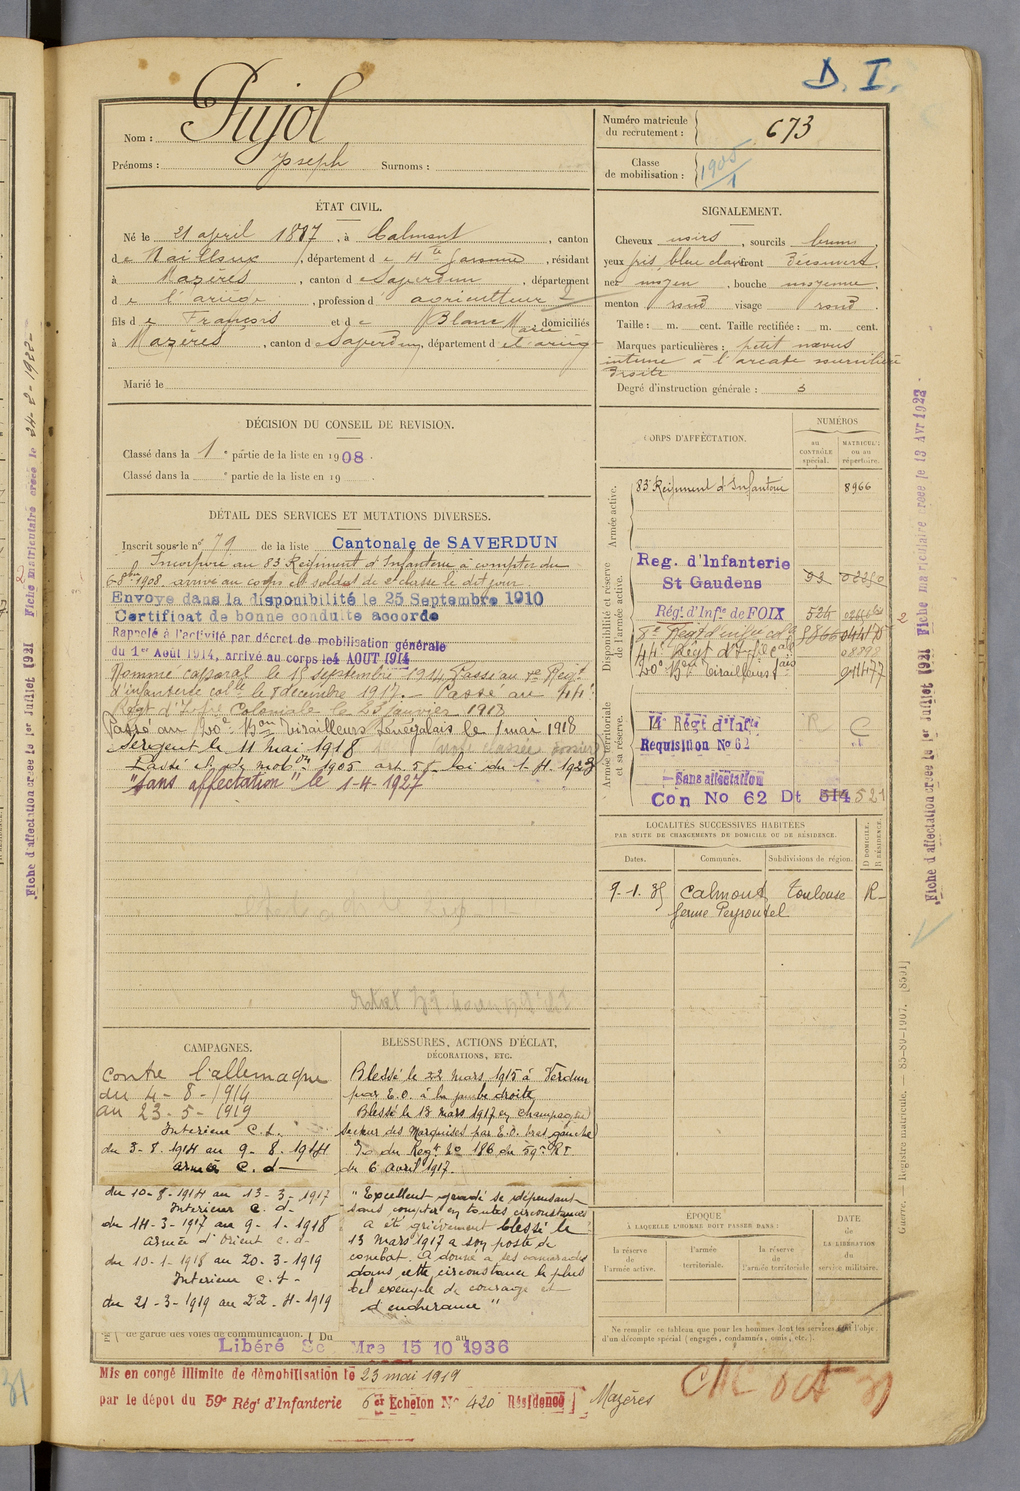 D. I.
Nom : Pujol
Prénoms : Joseph Surnoms :
Numéro matricule du recrutement : 673
Classe de mobilisation : 1905/1
ÉTAT CIVIL.
Né le 21 april 1887, à Calmont, canton
de Nailloux, département de Hte Garonne, résidant
à Mazères, canton de Saverdun, département
de l'ariège, profession d agriculteur 2
fils de François et de Blanc Marie domiciliés
à Mazères, canton de Saverdun, département de l'ariège
Marié le
SIGNALEMENT.
Cheveux noirs, sourcils bruns
yeux gris bleu clair front découvert,
nez moyen, bouche moyenne,
menton rond visage rond
Taille : m. cent. Taille rectifiée : m. cent.
Marques particulières : petit naevus
interne à l'arcade sourcilière
droite
Degré d'instruction générale : 3
DÉCISION DU CONSEIL DE REVISION.
Classé dans la 1e partie de la liste en 1908.
Classé dans la e partie de la liste en 19 .
DÉTAIL DES SERVICES ET MUTATIONS DIVERSES.
Inscrit sous le n° 79 de la liste Cantonale de SAVERDUN
Incorporé au 83 Régiment d'Infanterie à compter du
8bre 1908 arrivé au corps et soldat de 2e classe le dit jour
Envoyé dans la disponibilité le 25 Septembre 1910
Certificat de bonne conduite accordé
Rappelé à l'activité par décret de mobilisation générale
du 1er Août 1914, arrivé au corps le 4 AOUT 1914
Nommé caporal le 15 septembre 1914 Passé au 7e Régt
d'infanterie colle le 7 décembre 1917. — Passé au 44e
Regt d'Infre Coloniale le 23 Janvier 1918
Passé au 120e Bon Tirailleurs Sénégalais le 1 mai 1918
Sergent le 11 mai 1918
Passé cl. de mobon 1905 art. 58 loi du 1-4. 1923
"Sans affectation" le 1-4-1927
CORPS D'AFFECTATION.
NUMÉROS
au CONTRÔLE spécial.
MATRICULE ou au répertoire.
Armée active.
83 Régiment d'Infanterie 8966
Disponibilité et réserve de l'armée active.
Reg. d'Infanterie
St Gaudens
Régt d'Infie de FOIX
44e Regt d'Inf. cale 08898
Bon Tirailleurs
Armée territoriale et sa réserve.
14e Régt d'Infie R C
Requisition No 62
Sans affectation
Con No 62 Dt 514 521
LOCALITÉS SUCCESSIVES HABITÉES
PAR SUITE DE CHANGEMENTS DE DOMICILE OU DE RÉSIDENCE.
Dates. Communes. Subdivisions de région. D DOMICILE. R RÉSIDENCE.
9-1-35 Calmont Toulouse R
ferme Peyroutel
CAMPAGNES.
Contre l'allemagne
du 4-8-1914
au 23-5-1919
Interieur C. S.
du 3-8-1914 au 9-8-1914
Armée C. d
du 10-8-1914 au 13-3-1917
Interieur C. d-
du 14-3-1917 au 9-1-1918
Armée d'Orient c. d-
du 10-1-1918 au 20-3-1919
Interieur C. S-
du 21-3-1919 au 22-4-1919
BLESSURES, ACTIONS D'ÉCLAT,
DÉCORATIONS, ETC.
Blessé le 22 mars 1915 à Verdun
par E.O. à la jambe droite
Blessé le 13 mars 1917 en Champagne
secteur des Marquises par E.O. bras gauche
O. du Regt No 186 du 59e R.I.
du 6 avril 1917.
"Excellent gradé se dépensant
sans compter en toutes circonstances
a été grièvement blessé le
13 mars 1917 à son poste de
combat. A donné à ses camarades
dans cette circonstance le plus
bel exemple de courage et
d'endurance"
ÉPOQUE
À LAQUELLE L'HOMME DOIT PASSER DANS :
la réserve de l'armée active. l'armée territoriale. la réserve de l'armée territoriale
DATE DE LA LIBÉRATION du service militaire.
Ne remplir ce tableau que pour les hommes dont les services font l'objet
d'un décompte spécial (engagés, condamnés, omis, etc.).
de garde des voies de communication. Du au
Libéré Sce Mre 15 10 1936
Mis en congé illimité de démobilisation le 23 mai 1919
par le dépôt du 59e Régt d'Infanterie 6e Echelon No 420 Résidence Mazères
Fiche d'affectation créée le 1er Juillet 1921 Fiche matriculaire créée le 13 Avr 1922
Guerre. — Registre matricule. — 85-80-1907. [8591]
Fiche d'affectation créée le 1er Juillet 1921 Fiche matriculaire créée le 24-2-1922